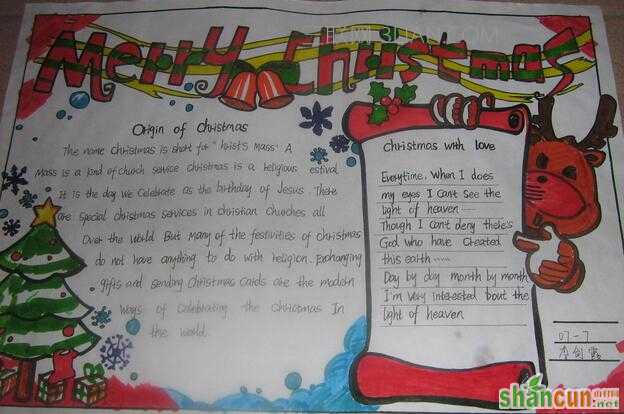 Merry Christmas
Origin of Christmas
The name Christmas is short for " hrist's Mass". A
Mass is a kind of church service christmas is a religious estival
It is the day we celebrate as the birthday of Jesus. There
are special christmas services in christian churches all
Over the World But many of the festivities of christmas
do not have anything to do with religion. Exchanging
gifts and sending Christmas cards are the modern
Ways of celebrating the christmas In
the world.
Christmas with love
Everytime, When I does
my eyes I can't see the
light of heaven ······
Though I can't deny there's
God who have Created
this earth ······
Day by day month by month
I'm very interested 'bout the
light of heaven
07-7
shancun
.net